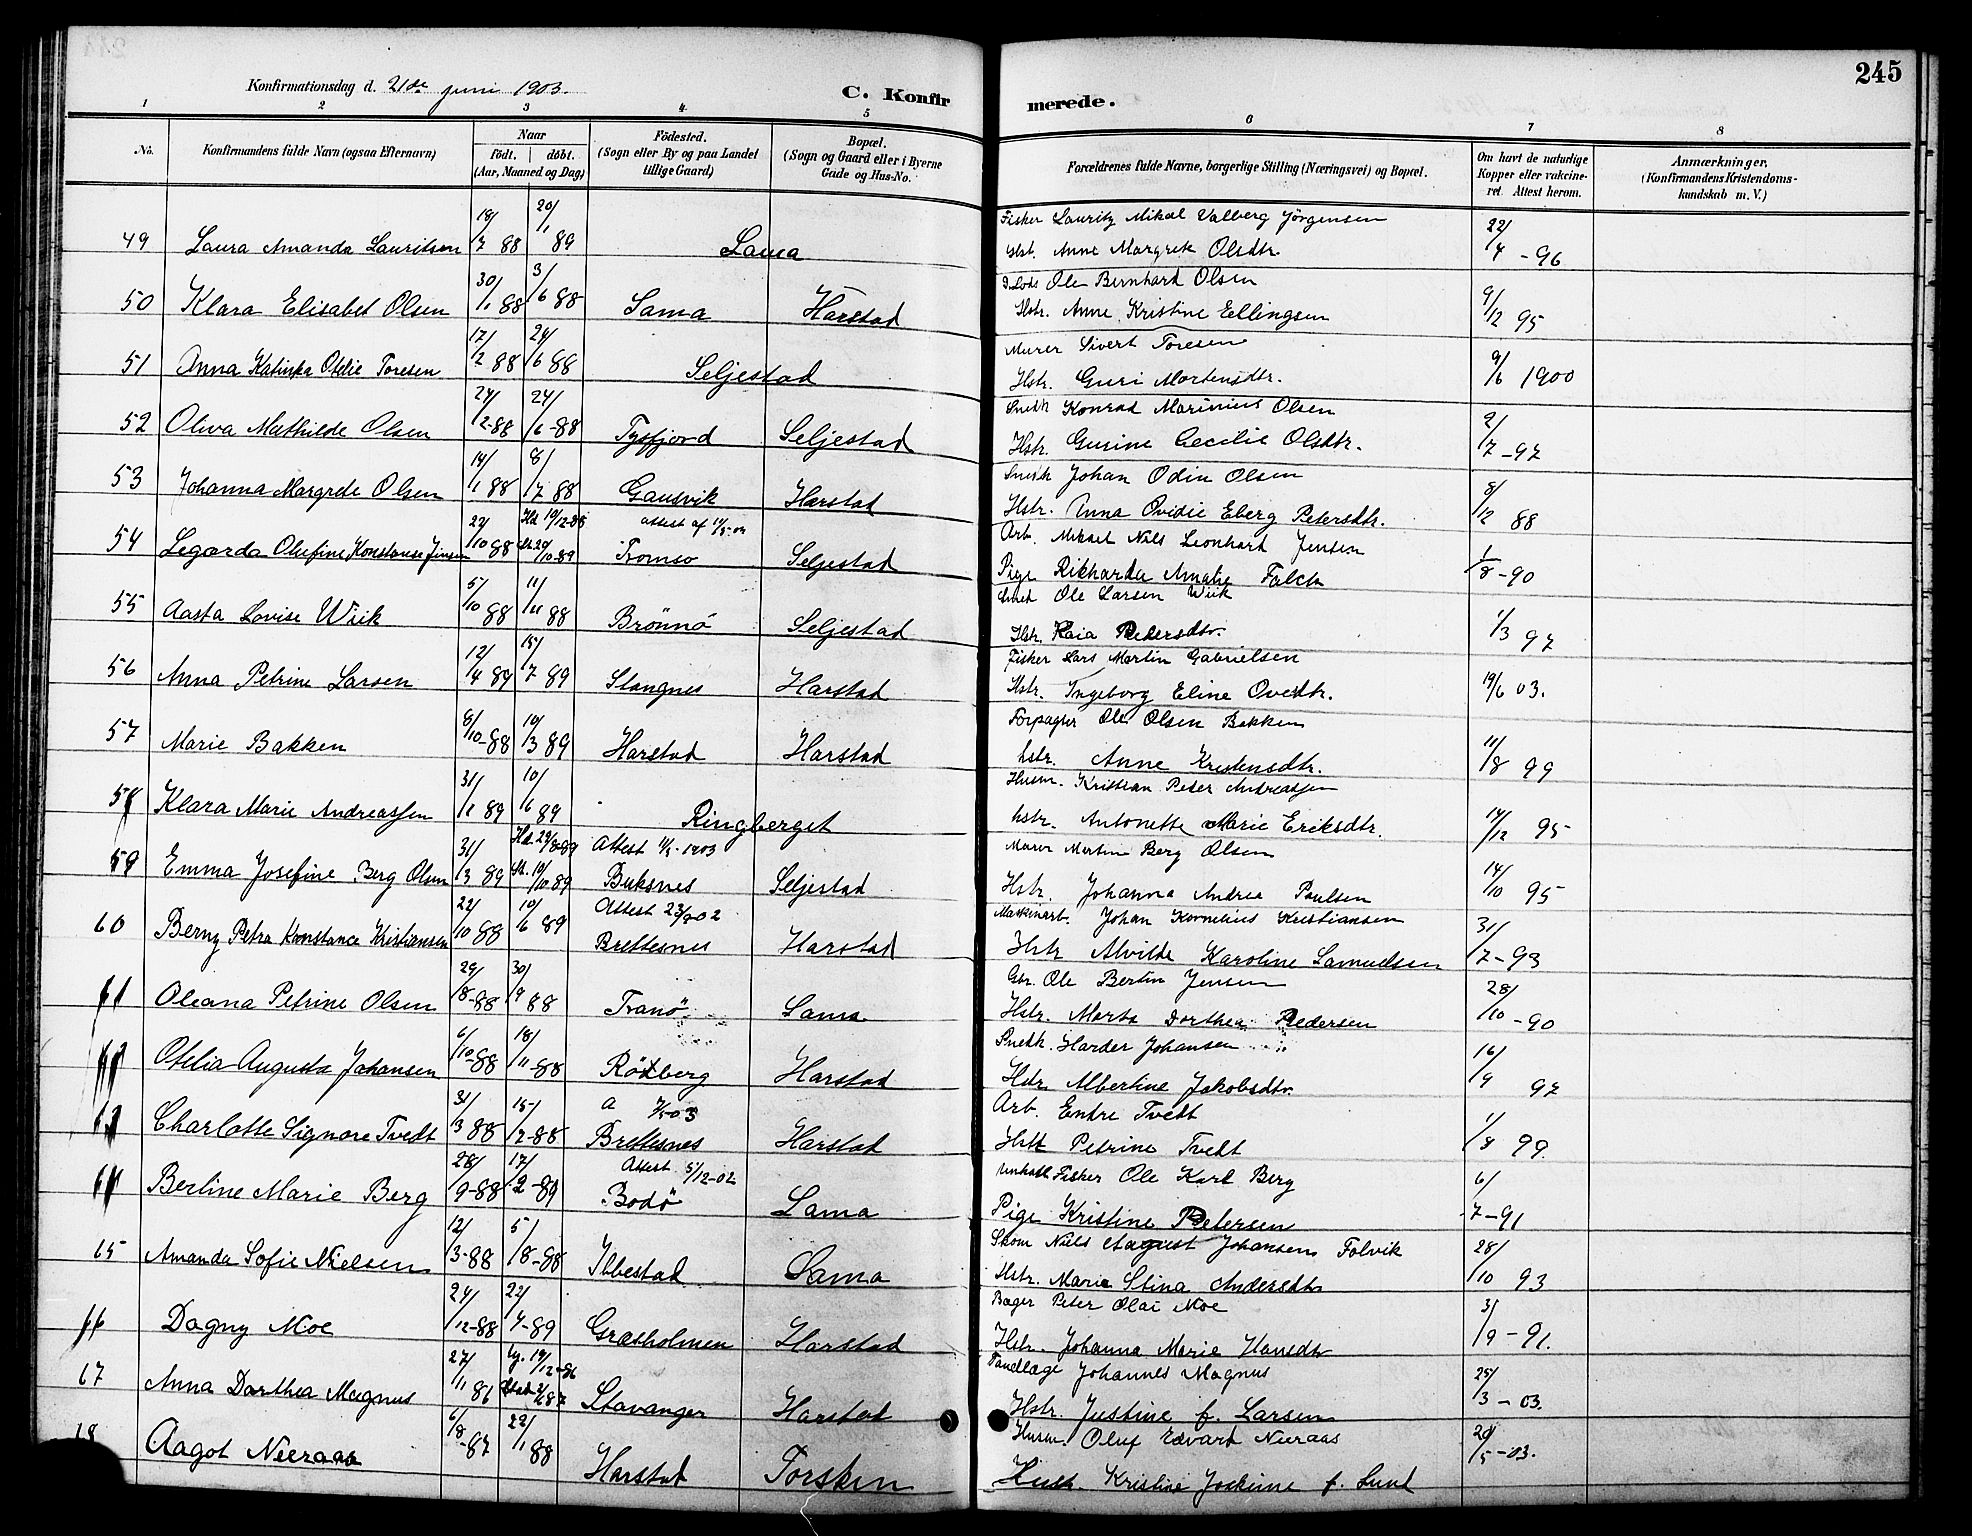 245
Konfirmationsdag d. 21de juni 1903.
C. Konfirmerede.
1 2 3 4 5 6 7 8
No.
Konfirmandens fulde Navn (ogsaa Efternavn)
Naar
födt. | döbt.
(Aar, Maaned og Dag)
Födested.
(Sogn eller By og paa Landet tillige Gaard)
Bopæl.
(Sogn og Gaard eller i Byerne Gade og Hus-No.
Forældrenes fulde Navne, borgerlige Stilling (Næringsvei) og Bopæl.
Om havt de naturlige Kopper eller vaccineret. Attest herom.
Anmærkninger.
(Konfirmandens Kristendomskundskab m. V.)
49 Laura Amanda Lauritsen 18/7 88 20/1 89 Sama Fisker Lauritz Mikal Valberg Jörgensen
Hst. Anne Margrete Olsdtr. 22/4 - 96
50 Klara Elisabet Olsen 30/1 88 3/6 88 Sama Harstad Ole Bernhard Olsen
Hstr. Anne Kristine Ellingsen 9/12 95
51 Anna Katinka Otelie Toresen 17/2 88 24/6 88 Seljestad Murer Sivert Toresen
Hstr. Guri Mortensdtr. 9/6 1900
52 Oliva Mathilde Olsen 24/6-88 Tysfjord Seljestad Snedk Konrad Marinius Olsen
Hstr. Gurine Cecilie Olsdtr. 2/7-97
53 Johanna Margrete Olsen 14/1 88 8/7 88 Gausvik Harstad Snedk Johan Odin Olsen
Hstr. Anna Ovidie Eberg Petersdtr. 8/12 88
54 Legarda Olufine Konstanse Jensen 22/10 88 Hd 19/12-88 attest af
Tromsö Seljestad Arb. Mikael Nils Leonhard Jensen
Pige Rikharda Amalie Falch 1/8-90
55 Aasta Lovise Wiik 5/10 88 11/11 88 Brönnö Seljestad Smed Ole Larsen Wiik
Hstr. Kaia Petersdtr. 1/3 97
56 Anna Petrine Larsen 12/4 89 15/7 89 Stangnes Harstad Fisker Lars Martin Gabrielsen
Hstr. Ingeborg Eline Ovedtr. 19/6 03.
57 Marie Bakken 8/10-88 10/3 89 Harstad Harstad Forpagter Ole Olsen Bakken
hstr. Anne Kristensdtr. 11/8 99
58 Klara Marie Andreassen 31/1 89 10/6 89 Ringberget Husm. Kristian Peter Andreassen
hstr. Antonette Marie Eriksdtr. 14/12 95
59 Emma Josefine Berg Olsen 31/3 89 Attest 1/5-1903
St. 19/10 89 Buksnes Seljestad Murer Martin Berg Olsen
Hstr. Johanna Andrea Paulsen 14/10 95
60 Berny Petra Konstance Kristiansen 22/10 88 10/6 89 Attest
Brettesnes Harstad Maskinarb. Johan Kornelius Kristiansen
Hstr Alvilde Karoline Samuelsen 31/7-93
61 Oleana Petrine Olsen 29/8-88 30/9 88 Tranö Sama Gbr. Ole Bertin Jensen
Hstr. Marta Dorthea Pedersen 28/10-90
Otelia Augusta Johansen 6/10-88 18/11-88 Rödberg Harstad Snedk. Harder Johansen
Hstr Albertine Jakobsdtr. 16/9 97
63 Charlotte Signore Tvedt 31/3 88 15/12-88 A
Brettesnes Harstad Arb. Endre Tvedt
Hstr Petrine Tvedt 1/8 99.
Berline Marie Berg 28/9-88 17/2-89 Attest 5/12-02
Bodö Sama Unkarl Fisker Ole Karl Berg
Pige Kristine Petersen 6/7-91
65 Amanda Sofie Nielsen 12/3-88 5/8-88 Ibbestad Sama Skom Niels August Johansen Folvik
Hstr. Marie Stina Andersdtr 28/10 93
66 Dagny Moe 24/12-88 22/4-89 Græsholmen Harstad Bager Peter Olai Moe
Hstr. Johanna Marie Hansdtr 3/9-91.
67 Anna Dorthea Magnus 27/11 86 19/12-86
Stavanger Harstad Tandlæge Johannes Magnus
Hstr. Justine f. Larsen 25/3-03.
Aagot Neeraas 6/8-87 22/1 88 Harstad Torsken Husm. Oluf Edvard Neeraas
Hustr. Kristine Jockime f. Lund 20/5-03.